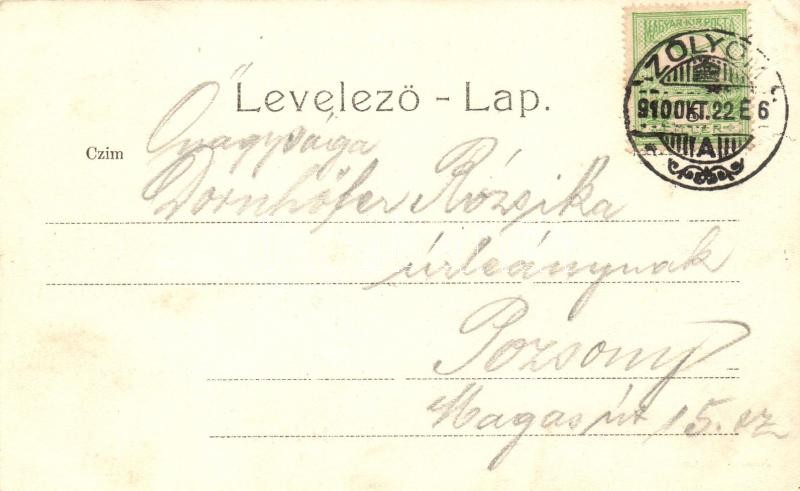 MAGYAR KIR. POSTA
ZÓLYOM
910 OKT. 22 E 6
A
Levelező - Lap.
Czim
Őnagysága
Dornhöfer Rózsika
úrleánynak
Pozsony
Magas út 15. sz